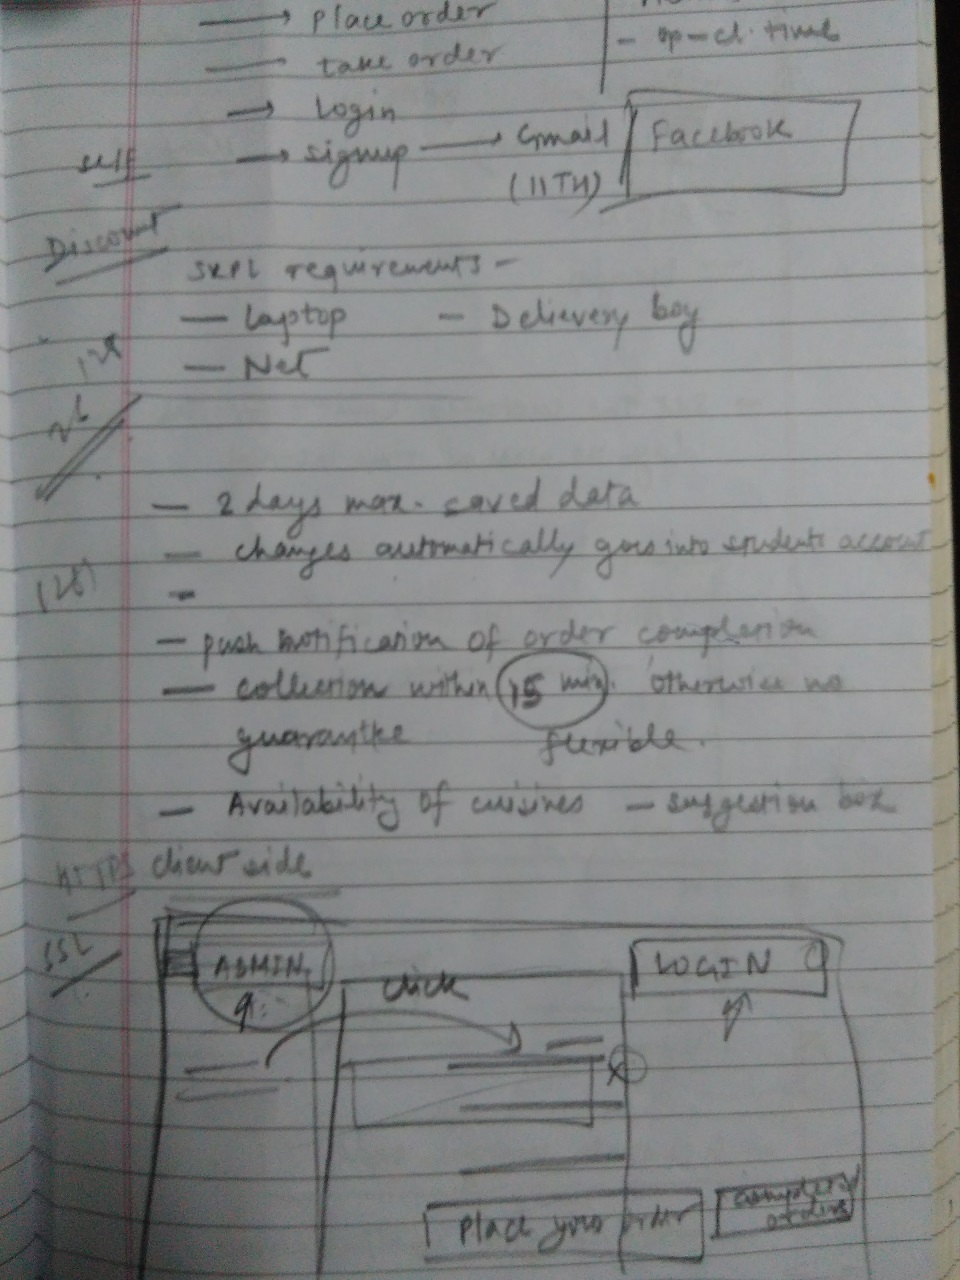 → place order
- op-cl. time
→ take order
→ Login
→ signup → Gmail
Facebook
(IITH)
self
Discount
requirements -
- Laptop - Delievery boy
- Net
- 2 days max. saved data
- changes automatically goes into students account
-
- push notification of order completion
- collection within 15 min. otherwise no
guarantee flexible.
- Availability of cuisines - suggestion box
HTTPS client side
SSL
ADMIN
click
LOGIN
Place your order
orders